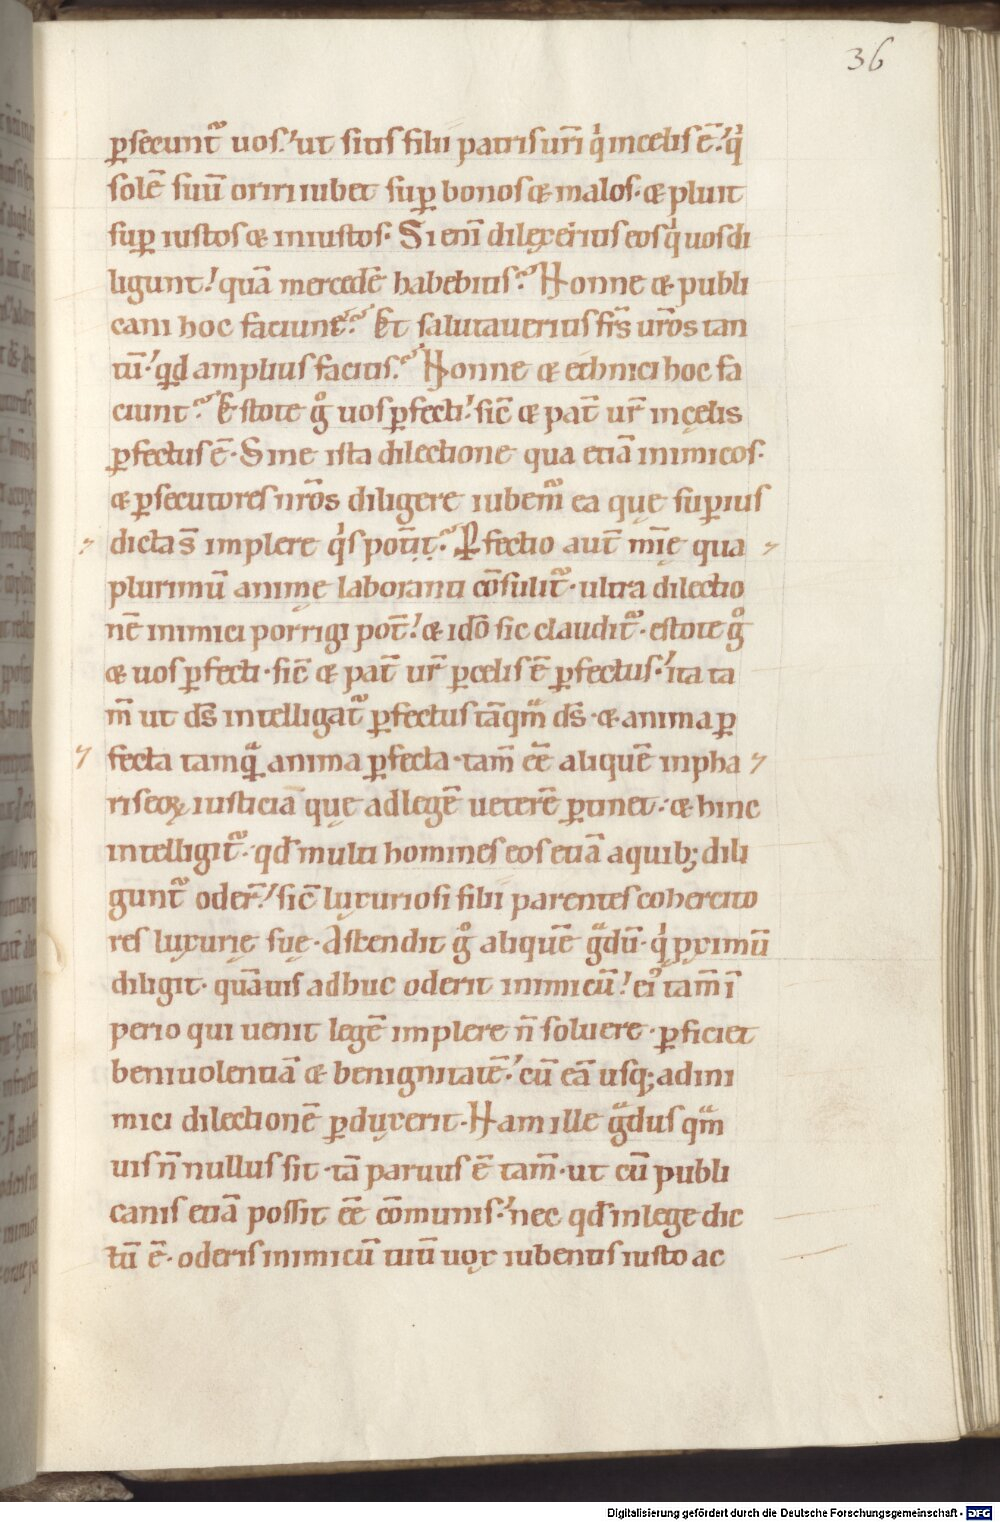 36
ꝑsecunt᷑ uos.' ut sitis filii patris ur̄i qͥ incelis ē.' qͥ
solē suū oriri iubet suꝑ bonos & malos· & pluit
suꝑ iustos & iniustos· Si eni̅ dilexeritis eos qͥ uos di
ligunt.' quā mercedē habebitis? Nonne & publi
cani hoc faciunt? Et salutaueritis fr̄s ur̄os tan
tū.' qđ amplius facitis? Nonne & ethnici hoc fa
ciunt? Estote gͦ uos ꝑfecti.' sic̄ & pat̄ ur̄ in cęlis
ꝑfectus ē· Sine ista dilectione qua etiā inimicos·
& ꝑsecutores nr̄os diligere iubem᷑ ea quę suꝑius
dicta s̄ implere qͥs pot̄it? Ꝑfectio aut̄ mīę qua
plurimū animę laboranti cōsulit᷑· ultra dilectio
nē inimici porrigi pot̄.' & idō sic claudit᷑· estote gͦ
& uos ꝑfecti· sic̄ & pat̄ ur̄ ꝑcelis ē ꝑfectus.' ita ta
m̄ ut ds̄ intelligat᷑ ꝑfectus tāqᷓm ds̄· & anima ꝑ
fecta tamqᷓ anima ꝑfecta· tam̄ ēē aliquē inpha
riseoꝝ iusticia que ad legē ueterē ꝑtinet.' & hinc
intelligit᷑· qđ multi homines eos etiā a quib; dili
gunt᷑ oder̄.' sic̄ luxuriosi filii parentes cohercito
res luxurię suę· Ascendit gͦ aliquē gᷓdū· qͥ ꝓximū
diligit· quāuis adhuc oderit inimicū.' eiꝰ tam̄ ī
perio qui uenit legē implere n̄ soluere· ꝑficiet
beniuolentiā & benignitatē.' cū eā usq; ad ini
mici dilectionē ꝑduxerit· Nam ille gᷓdus qᷓm
uis n̄ nullus sit· tā paruus ē tam̄· ut cū publi
canis etiā possit ēē cōmunis.' nec qđ in lege dic
tū ē· oderis inimicū tuū uox iubentis iusto ac
Digitalisierung gefördert durch die Deutsche Forschungsgemeinschaft - DFG